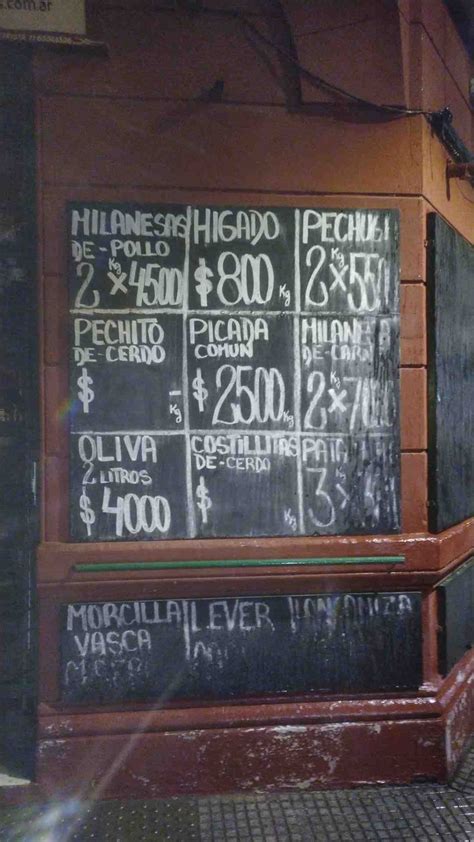 s.com.ar
MILANESAS
DE-POLLO
2 Kg x 4500
HIGADO
$800 Kg
PECHUGA
2 x 550
PECHITO
DE-CERDO
$ - Kg
PICADA
COMUN
$2500 Kg
MILANESA
DE-CARNE
2 x
OLIVA
2 LITROS
$4000
COSTILLITAS
DE-CERDO
$ Kg
PATA
3 x
MORCILLA
VASCA
LEVER
LONGANIZA